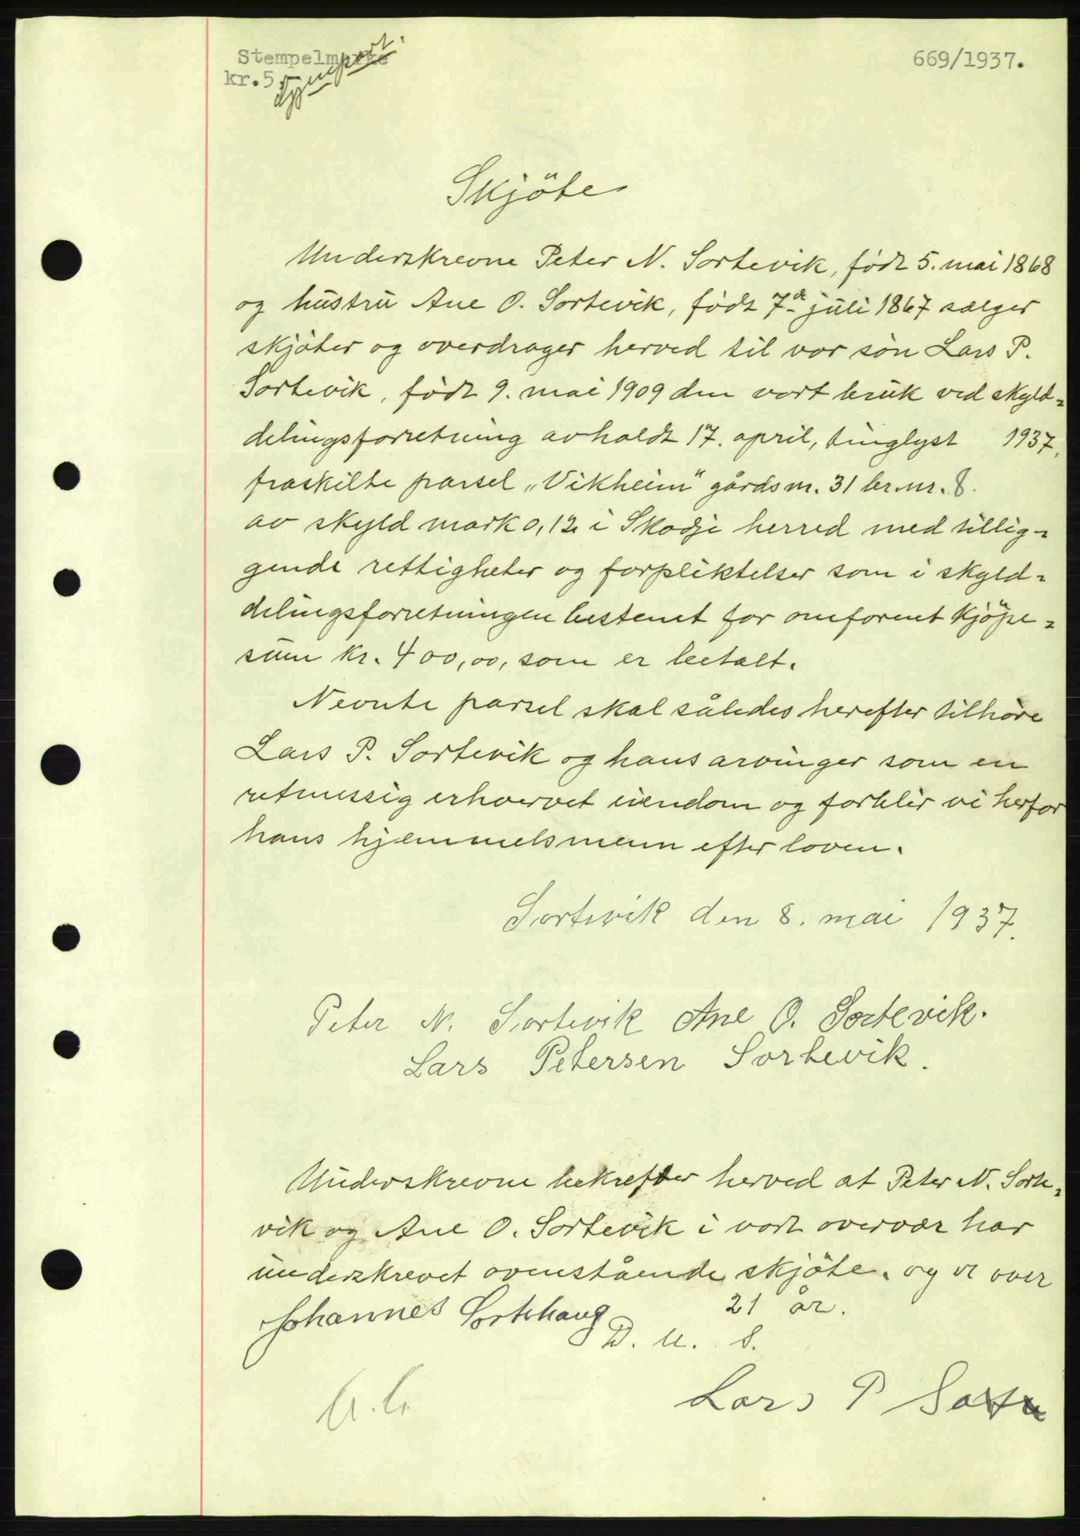 Stempelmerke
kr.5
669/1937.
Skjöte
Underskrevne Peter N. Sortevik, født 5. mai 1868
og hustru Ane O. Sortevik, født 7de juli 1867 sælger
skjöter og overdrager herved til vor søn Lars P.
Sortevik, født 9. mai 1909 den vort bruk ved skyld=
delingsforretning avholdt 17. april, tinglyst 1937,
fraskilte parsel „Vikheim“ gårdsnr. 31 br.nr. 8.
av skyld mark 0,12 i Skodje herred med tillig=
gende rettigheter og forpliktelser som i skyld=
delingsforretningen bestemt for omforenet kjöpe=
sum kr. 400,00, som er betalt.
Nevnte parsel skal således herefter tilhöre
Lars P. Sortevik og hans arvinger som en
retmessig erhvervet eiendom og forblir vi herfor
hans hjemmelsmenn efter loven.
Sortevik den 8. mai 1937.
Peter N. Sortevik Ane O. Sortevik.
Lars Petersen Sortevik.
Underskrevne bekrefter herved at Peter N. Sorte=
vik og Ane O. Sortevik i vort overvær har
underskrevet ovenstående skjöte. og er over
21 år.
Johannes Sortehaug
D. U. S.
Lars P